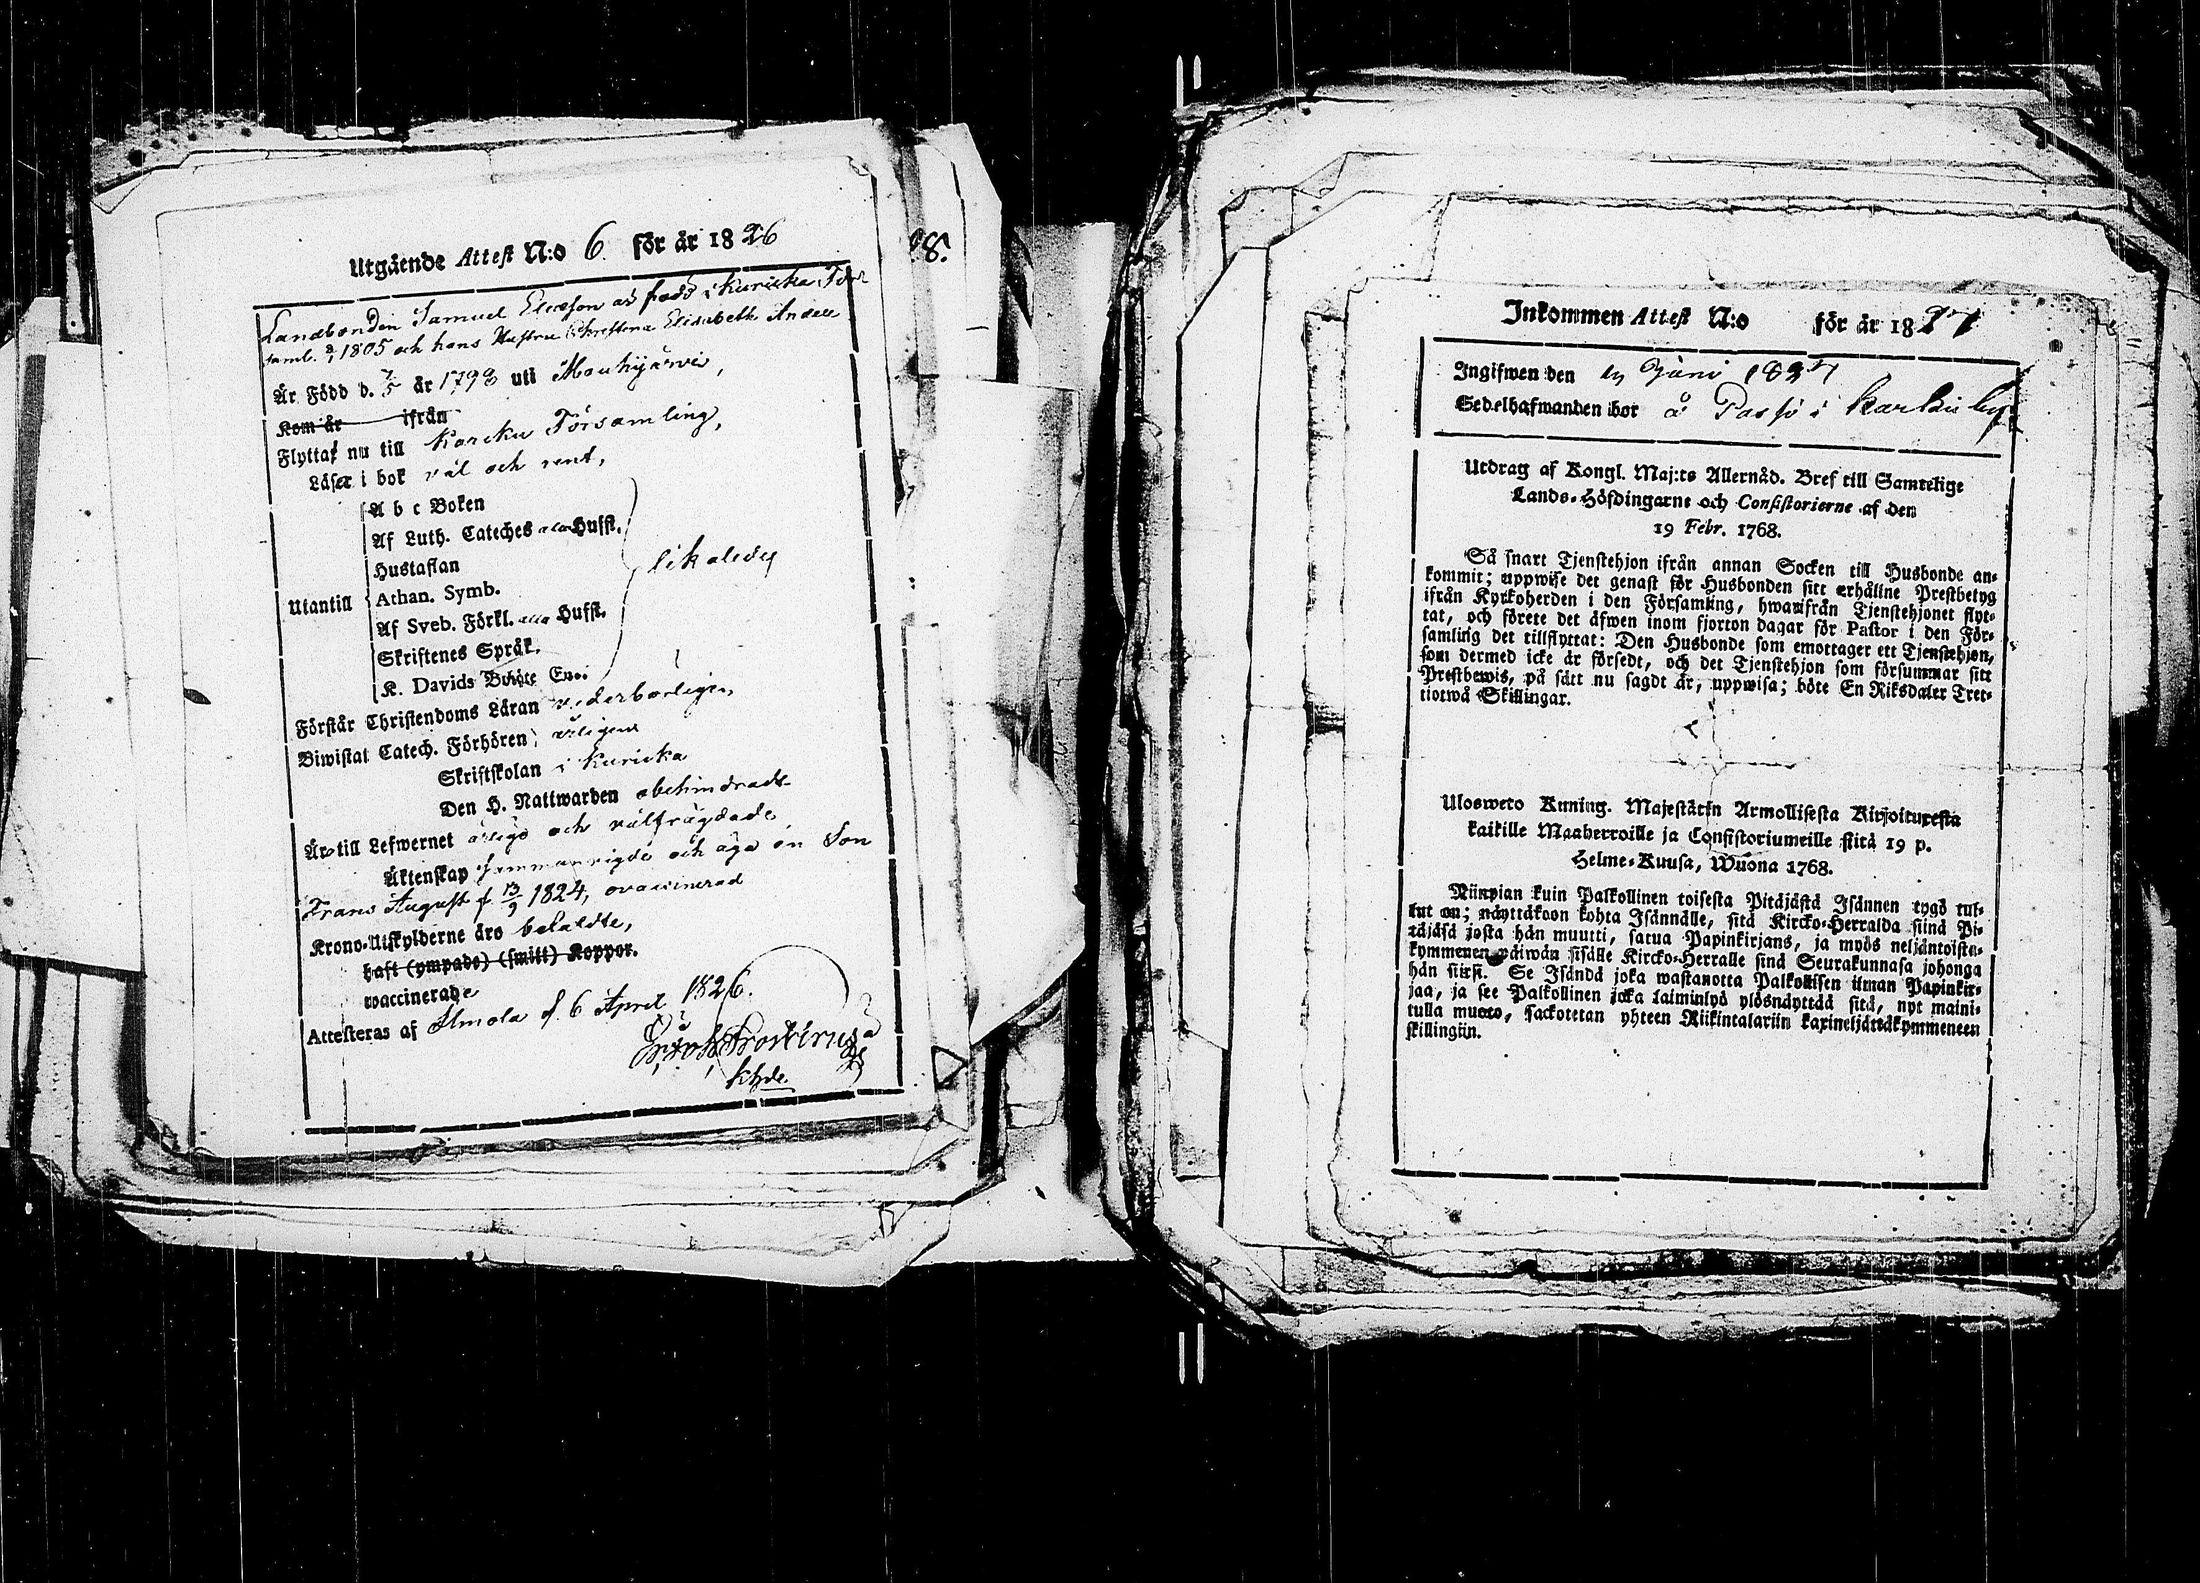 Utgående Attest N:o 6. för år 1826
28.
Landbonden Samuel Elieson
född i Kuricka För
saml. 1805 och hans Hustru Christina Elisabeth Anders
Är Född d. 7/5 år 1798 uti Mouhijärvi,
Kom år ifrån
Flyttar nu till Karcku Församling,
Läser i bok väl och rent,
A b c Boken
Af Luth. Cateches Husst.
Hustaflan
Utantill Athan. Symb.
Af Sveb. Förkl. Husst.
Skriftenes Språk.
K. Davids Bohte En..
likaledes
Förstår Christendoms Läran vederbörligen
Biwistat Catech. Förhören årligen
Skriftskolan i Kuricka
Den H. Nattwarden obehindrade
Äro till Lefwernet ärliga och välfrägdade
Äktenskap sammanvigde och äga en Son
Frans August f. 13/9 1824, ovaccinerad
Krono-Utskylderne äro betaldte,
haft (ympade) (smitt) Koppor.
waccinerade
Attesteras af Ilmola d. 6 April 1826.
Frosterus
Khde.
Inkommen Attest N:o för år 1827
Ingifwen den Juni 1827
Sedelhafwanden bor å Passi i Karkku by
Utdrag af Kongl. Maj:ts Allernåd. Bref till Samtelige
Lands-Höfdingarne och Consistorierne af den
19 Febr. 1768.
Så snart Tjenstehjon ifrån annan Socken till Husbonde an-
kommit; uppwise det genast för Husbonden sitt erhållne Prestbetyg
ifrån Kyrkoherden i den Församling, hwarifrån Tjenstehjonet flyt-
tat, och förete det äfwen inom fjorton dagar för Pastor i den För-
samling det tillflyttat: Den Husbonde som emottager ett Tjenstehjon,
som dermed icke är försedt, och det Tjenstehjon som försummar sitt
Prestbewis, på sätt nu sagdt är, uppwisa; böte En Riksdaler Tret-
tiotwå Skillingar.
Ulosweto Kuning. Majestätin Armollisesta Kirjoituxesta
kaikille Maaherroille ja Consistoriumeille siitä 19 p.
Helme-Kuusa, Wuona 1768.
Niinpian kuin Palkollinen toisesta Pitäjästä Isännen tygö tul-
lut on; näyttäkoon kohta Isännälle, sitä Kircko-Herralda siinä Pi-
täjäsä josta hän muutti, satua Papinkirjans, ja myös neljäntoista-
kymmenen päiwän sisälle Kircko-Herralle sinä Seurakunnasa johonga
hän siirsi. Se Isändä joka wastanotta Palkollisen ilman Papinkir-
jaa, ja see Palkollinen joka laiminlyö ylösnäyttää sitä, nyt maini-
tulla muoto, sackotetan yhteen Riikintalariin kaxineljättäkymmeneen
skillingiin.